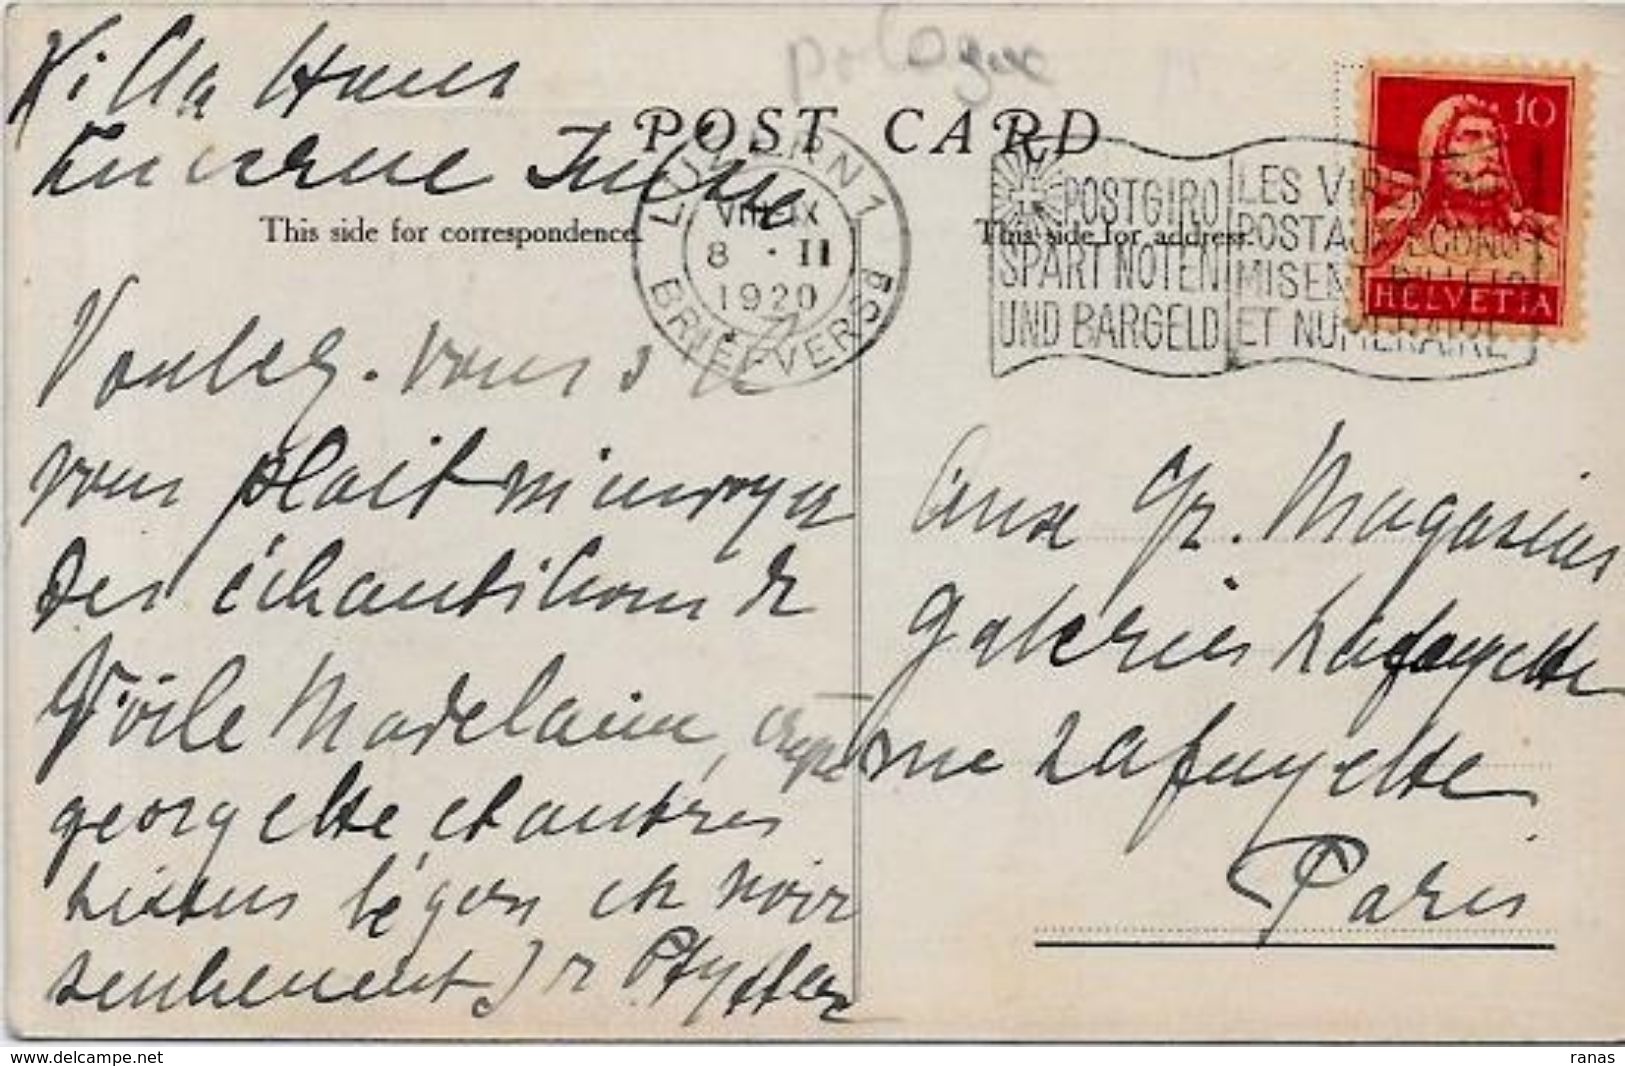 Villa
Lucerne Suisse
pologne
POST CARD
This side for correspondence.
This side for address.
LUZERN 1
VIII-IX
8 · II
1920
BRIEFVERSD
POSTGIRO
SPART NOTEN
UND BARGELD
LES VIREMENTS
POSTAUX ECONO
MISENT BILLETS
ET NUMERAIRE
10
HELVETIA
Voulez-vous s'il
vous plait m'envoyer
des échantillons de
Voile Madelaine, crepe
georgette et autres
tissus légers en noir
seulement
Aux Gr. Magasins
Galeries Lafayette
rue Lafayette
Paris
www.delcampe.net
ranas